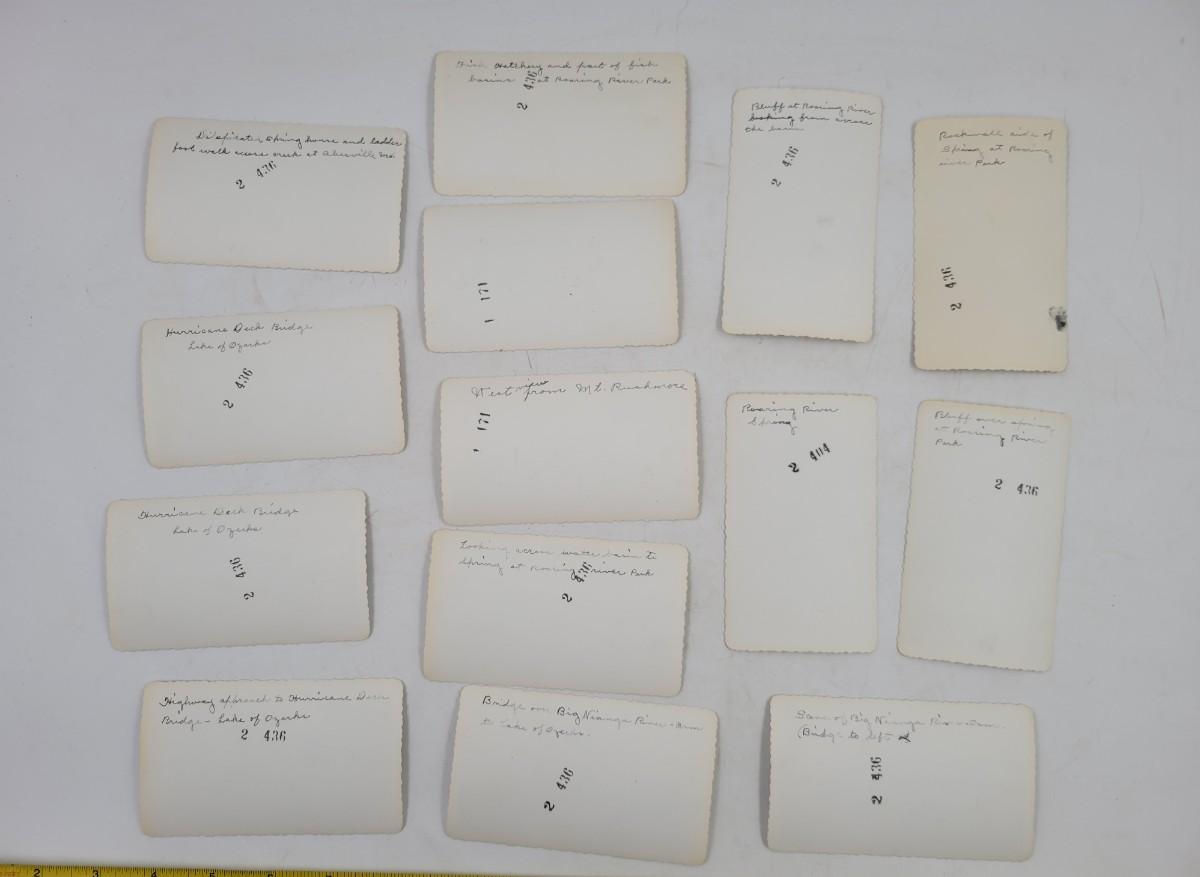 Dilapidated Spring house and ladder
foot walk across creek at Abesville Mo.
2 436
Hurricane Deck Bridge
Lake of Ozarks
2 436
Hurricane Deck Bridge
Lake of Ozarks
2 436
Highway approach to Hurricane Deck
Bridge - Lake of Ozarks
2 436
Fish Hatchery and part of fish
basins at Roaring River Park
2 436
1 171
West view from Mt. Rushmore
1 171
Looking across water basin to
Spring at Roaring river Park
2 436
Bridge over Big Niangua River - Arm
to Lake of Ozarks.
2 436
Bluff at Roaring River
looking from across
the basin
2 436
Roaring River
Spring
2 404
Rockwall side of
Spring at Roaring
river Park
2 436
Bluff over spring
at Roaring River
Park
2 436
Scene of Big Niangua River - Arm.
(Bridge to left
2 436
2 3 4 5 6